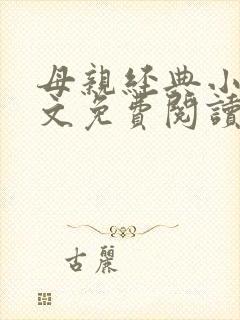 母親經典小
文免費閱讀
古麗